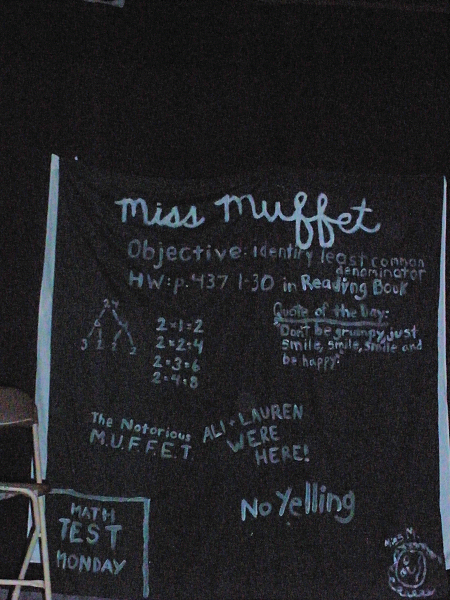 Miss Muffet
Objective: Identify least common
denominator
HW: p. 437 1-30 in Reading Book
Quote of the Day:
"Don't be grumpy, just
smile, smile, smile and
be happy."
24
3 2 2
2×1=2
2×2=4
2×3=6
2×4=8
The Notorious
M.U.F.F.E.T.
ALI + LAUREN
WERE
HERE!
No Yelling
MATH
TEST
MONDAY
Miss M.